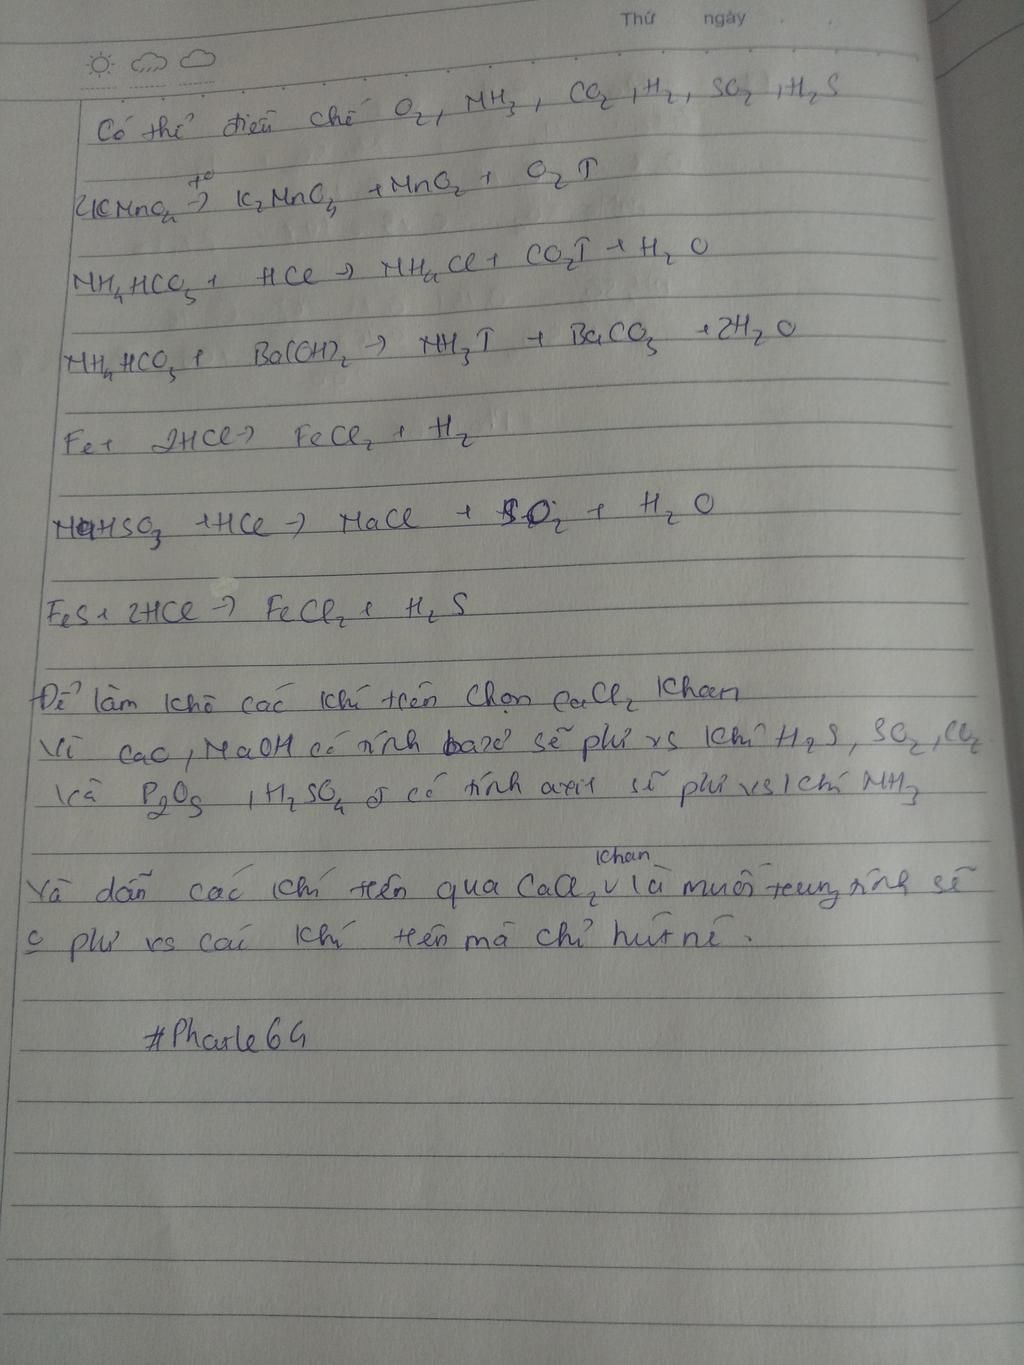 Thứ ngày
Có thể điều chế O₂, NH₃, CO₂, H₂, SO₂, H₂S
2KMnO₄ t°→ K₂MnO₄ + MnO₂ + O₂↑
NH₄HCO₃ + HCl → NH₄Cl + CO₂↑ + H₂O
NH₄HCO₃ + Ba(OH)₂ → NH₃↑ + BaCO₃ + 2H₂O
Fe + 2HCl → FeCl₂ + H₂
NaHSO₃ + HCl → NaCl + SO₂ + H₂O
FeS + 2HCl → FeCl₂ + H₂S
Để làm khô các khí trên chọn CaCl₂ khan
Vì CaO, NaOH có tính bazơ sẽ pứ vs khí H₂S, SO₂, CO₂
và P₂O₅, H₂SO₄ đ có tính axit sẽ pứ vs khí NH₃
Và dẫn các khí trên qua CaCl₂ khan là muối trung tính sẽ
pứ vs các khí trên mà chỉ hút
#Pharle64